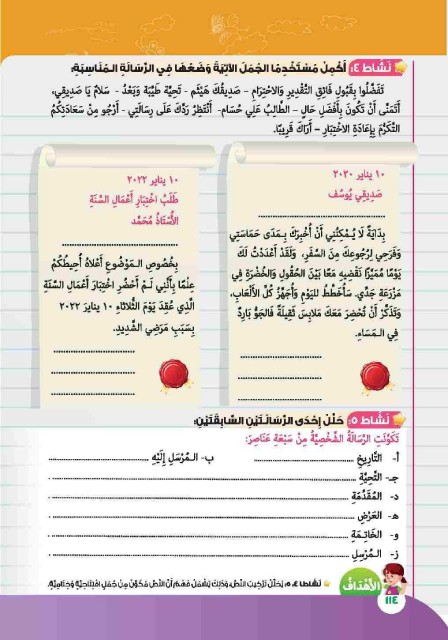 نَشاط ٤: أَكْمِلْ مُسْتَخْدِمًا الجُمَلَ الآتِيَةَ وَضَعْهَا فِي الرِّسَالَةِ المُنَاسِبَةِ:
تَفَضَّلُوا بِقَبُولِ فَائِقِ التَّقْدِيرِ وَالاحْتِرَامِ - صَدِيقُكَ هَيْثَم - تَحِيَّةً طَيِّبَةً وَبَعْدُ - سَلَامٌ يَا صَدِيقِي،
أَتَمَنَّى أَنْ تَكُونَ بِأَفْضَلِ حَالٍ - الطَّالِبُ عَلِي حُسَام - أَنْتَظِرُ رَدَّكَ عَلَى رِسَالَتِي - أَرْجُو مِنْ سَعَادَتِكُمُ
التَّكَرُّمَ بِإِعَادَةِ الاخْتِبَارِ - أَرَاكَ قَرِيبًا.
١٠ يناير ٢٠٢٠
صَدِيقِي يُوسُف
بِدَايَةً لَا يُمْكِنُنِي أَنْ أُخْبِرَكَ بِمَدَى حَمَاسَتِي
وَفَرَحِي لِرُجُوعِكَ مِنَ السَّفَرِ، وَلَقَدْ أَعْدَدْتُ لَكَ
يَوْمًا مُمَيَّزًا نَقْضِيهِ مَعًا بَيْنَ الحُقُولِ وَالخُضْرَةِ فِي
مَزْرَعَةِ جَدِّي. سَأُخَطِّطُ لِليَوْمِ وَأُجَهِّزُ كُلَّ الأَلْعَابِ،
وَتَذَكَّرْ أَنْ تُحْضِرَ مَعَكَ مَلَابِسَ ثَقِيلَةً فَالجَوُّ بَارِدٌ
فِي المَسَاءِ.
١٠ يناير ٢٠٢٢
طَلَبُ اخْتِبَارِ أَعْمَالِ السَّنَةِ
الأُسْتَاذُ مُحَمَّد
بِخُصُوصِ المَوْضُوعِ أَعْلَاهُ أُحِيطُكُمْ
عِلْمًا بِأَنَّنِي لَمْ أَحْضُرِ اخْتِبَارَ أَعْمَالِ السَّنَةِ
الَّذِي عُقِدَ يَوْمَ الثُّلَاثَاءِ ١٠ يناير ٢٠٢٢
بِسَبَبِ مَرَضِي الشَّدِيدِ.
نَشاط ٥: حَلِّلْ إِحْدَى الرِّسَالَتَيْنِ السَّابِقَتَيْنِ:
تَكَوَّنَتِ الرِّسَالَةُ الشَّخْصِيَّةُ مِنْ سَبْعَةِ عَنَاصِرَ:
أ- التَّارِيخِ ب- المُرْسَلِ إِلَيْهِ
جـ- التَّحِيَّةِ
د- المُقَدِّمَةِ
هـ- العَرْضِ
و- الخَاتِمَةِ
ز- المُرْسِلِ
الأَهْدَافُ
نَشَاطَا ٤، ٥: يُحَلِّلُ تَرْكِيبَ النَّصِّ، وَذَلِكَ يَشْمَلُ فَهْمَ أَنَّ النَّصَّ مُكَوَّنٌ مِنْ جُمَلٍ افْتِتَاحِيَّةٍ وَخِتَامِيَّةٍ.
١١٤